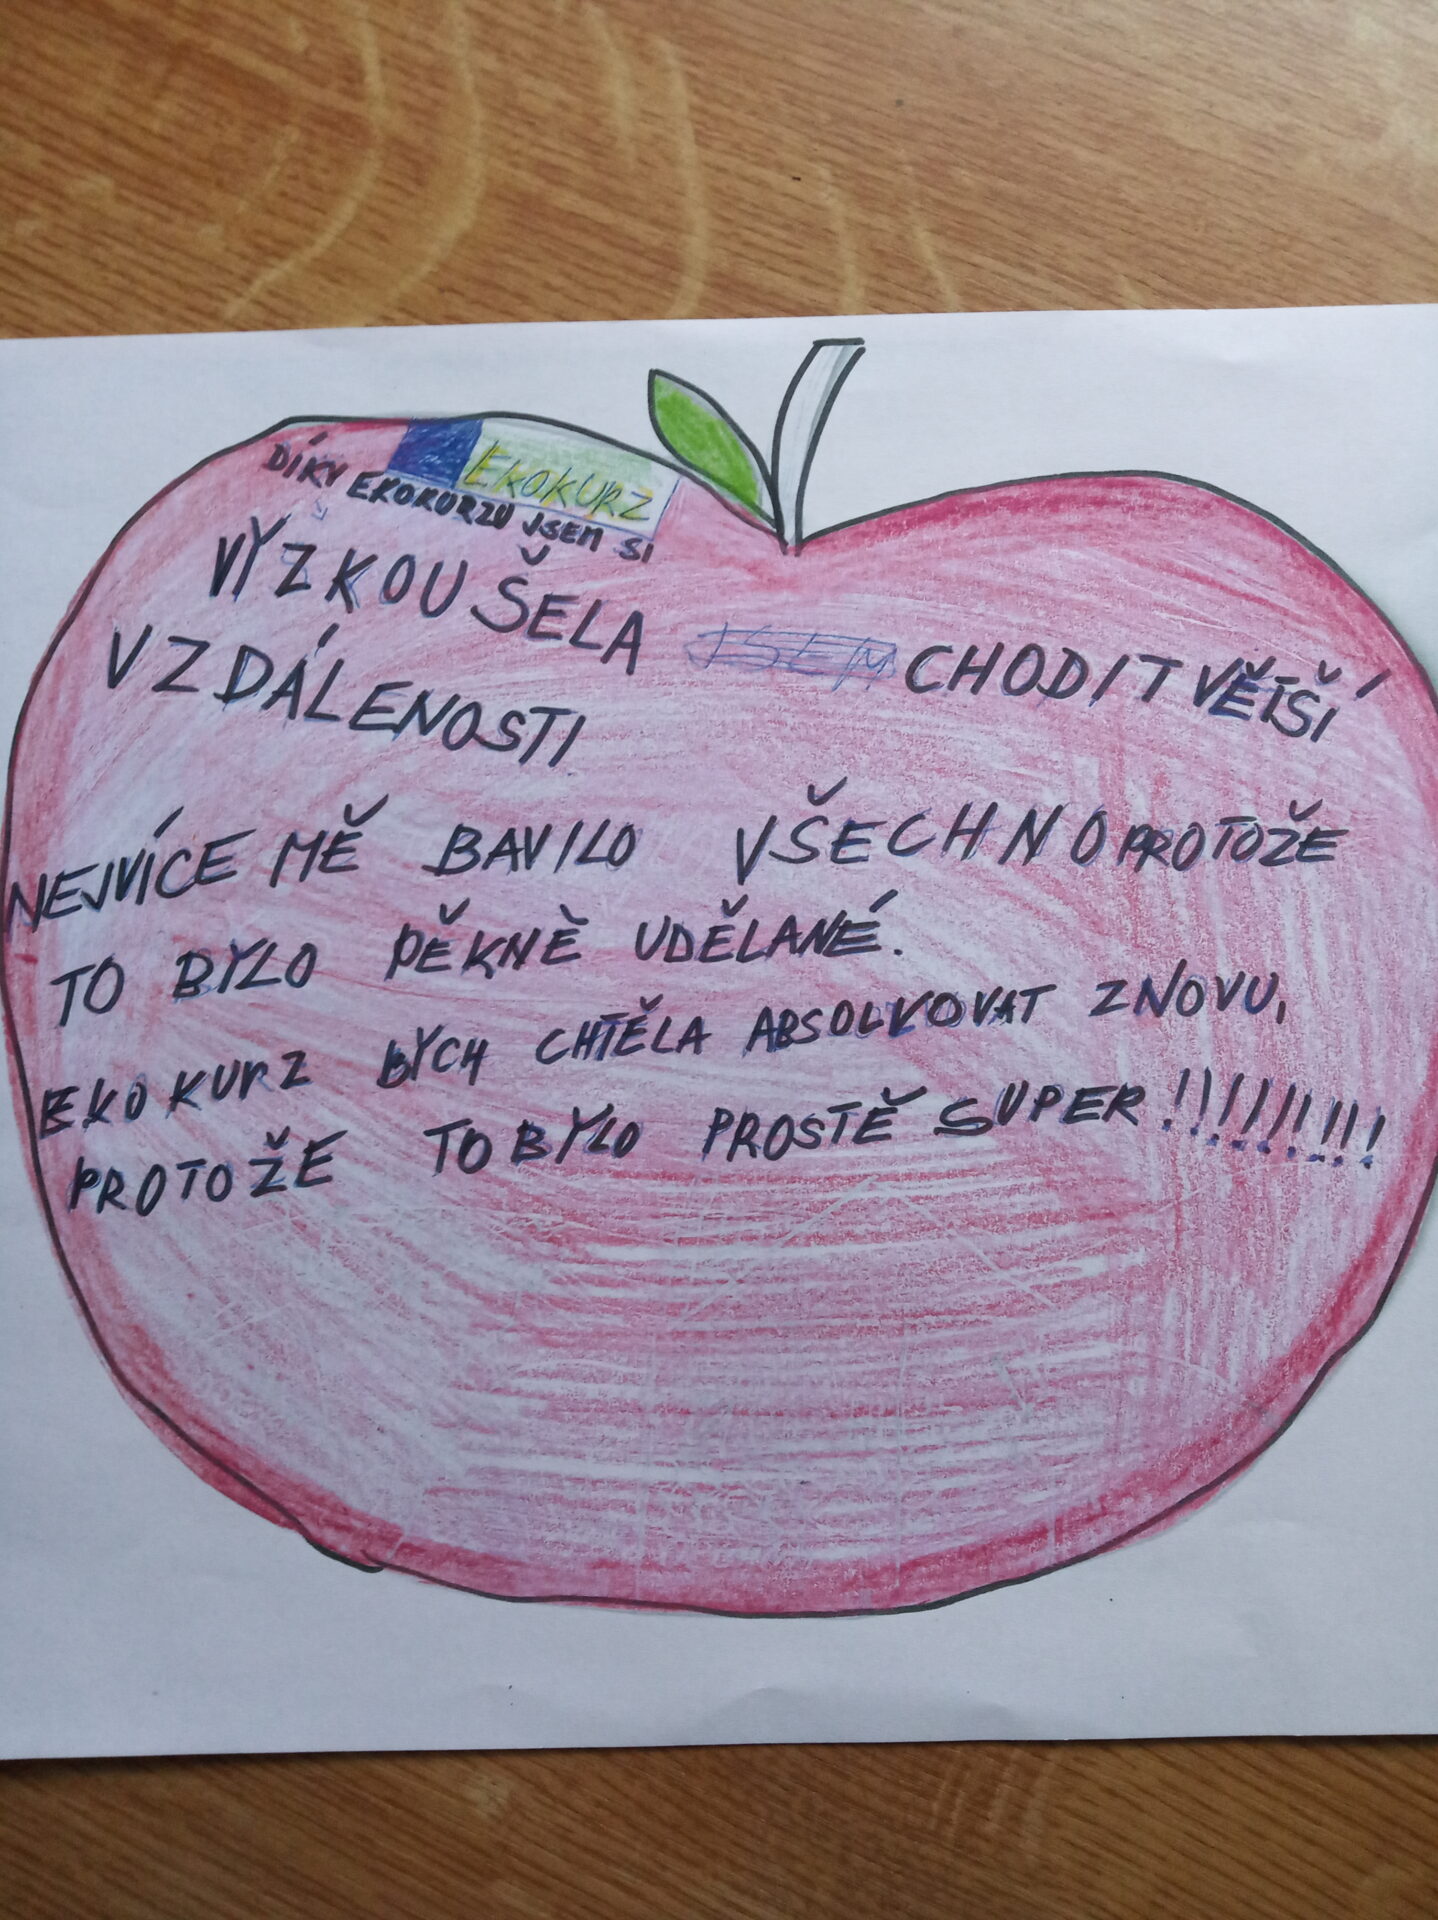 EKOKURZ
DÍKY EKOKURZU JSEM SI
VYZKOUŠELA JSEM CHODIT VĚTŠÍ
VZDÁLENOSTI
NEJVÍCE MĚ BAVILO VŠECHNO PROTOŽE
TO BYLO PĚKNĚ UDĚLANÉ.
EKOKURZ BYCH CHTĚLA ABSOLVOVAT ZNOVU,
PROTOŽE TO BYLO PROSTĚ SUPER!!!!!!!!!